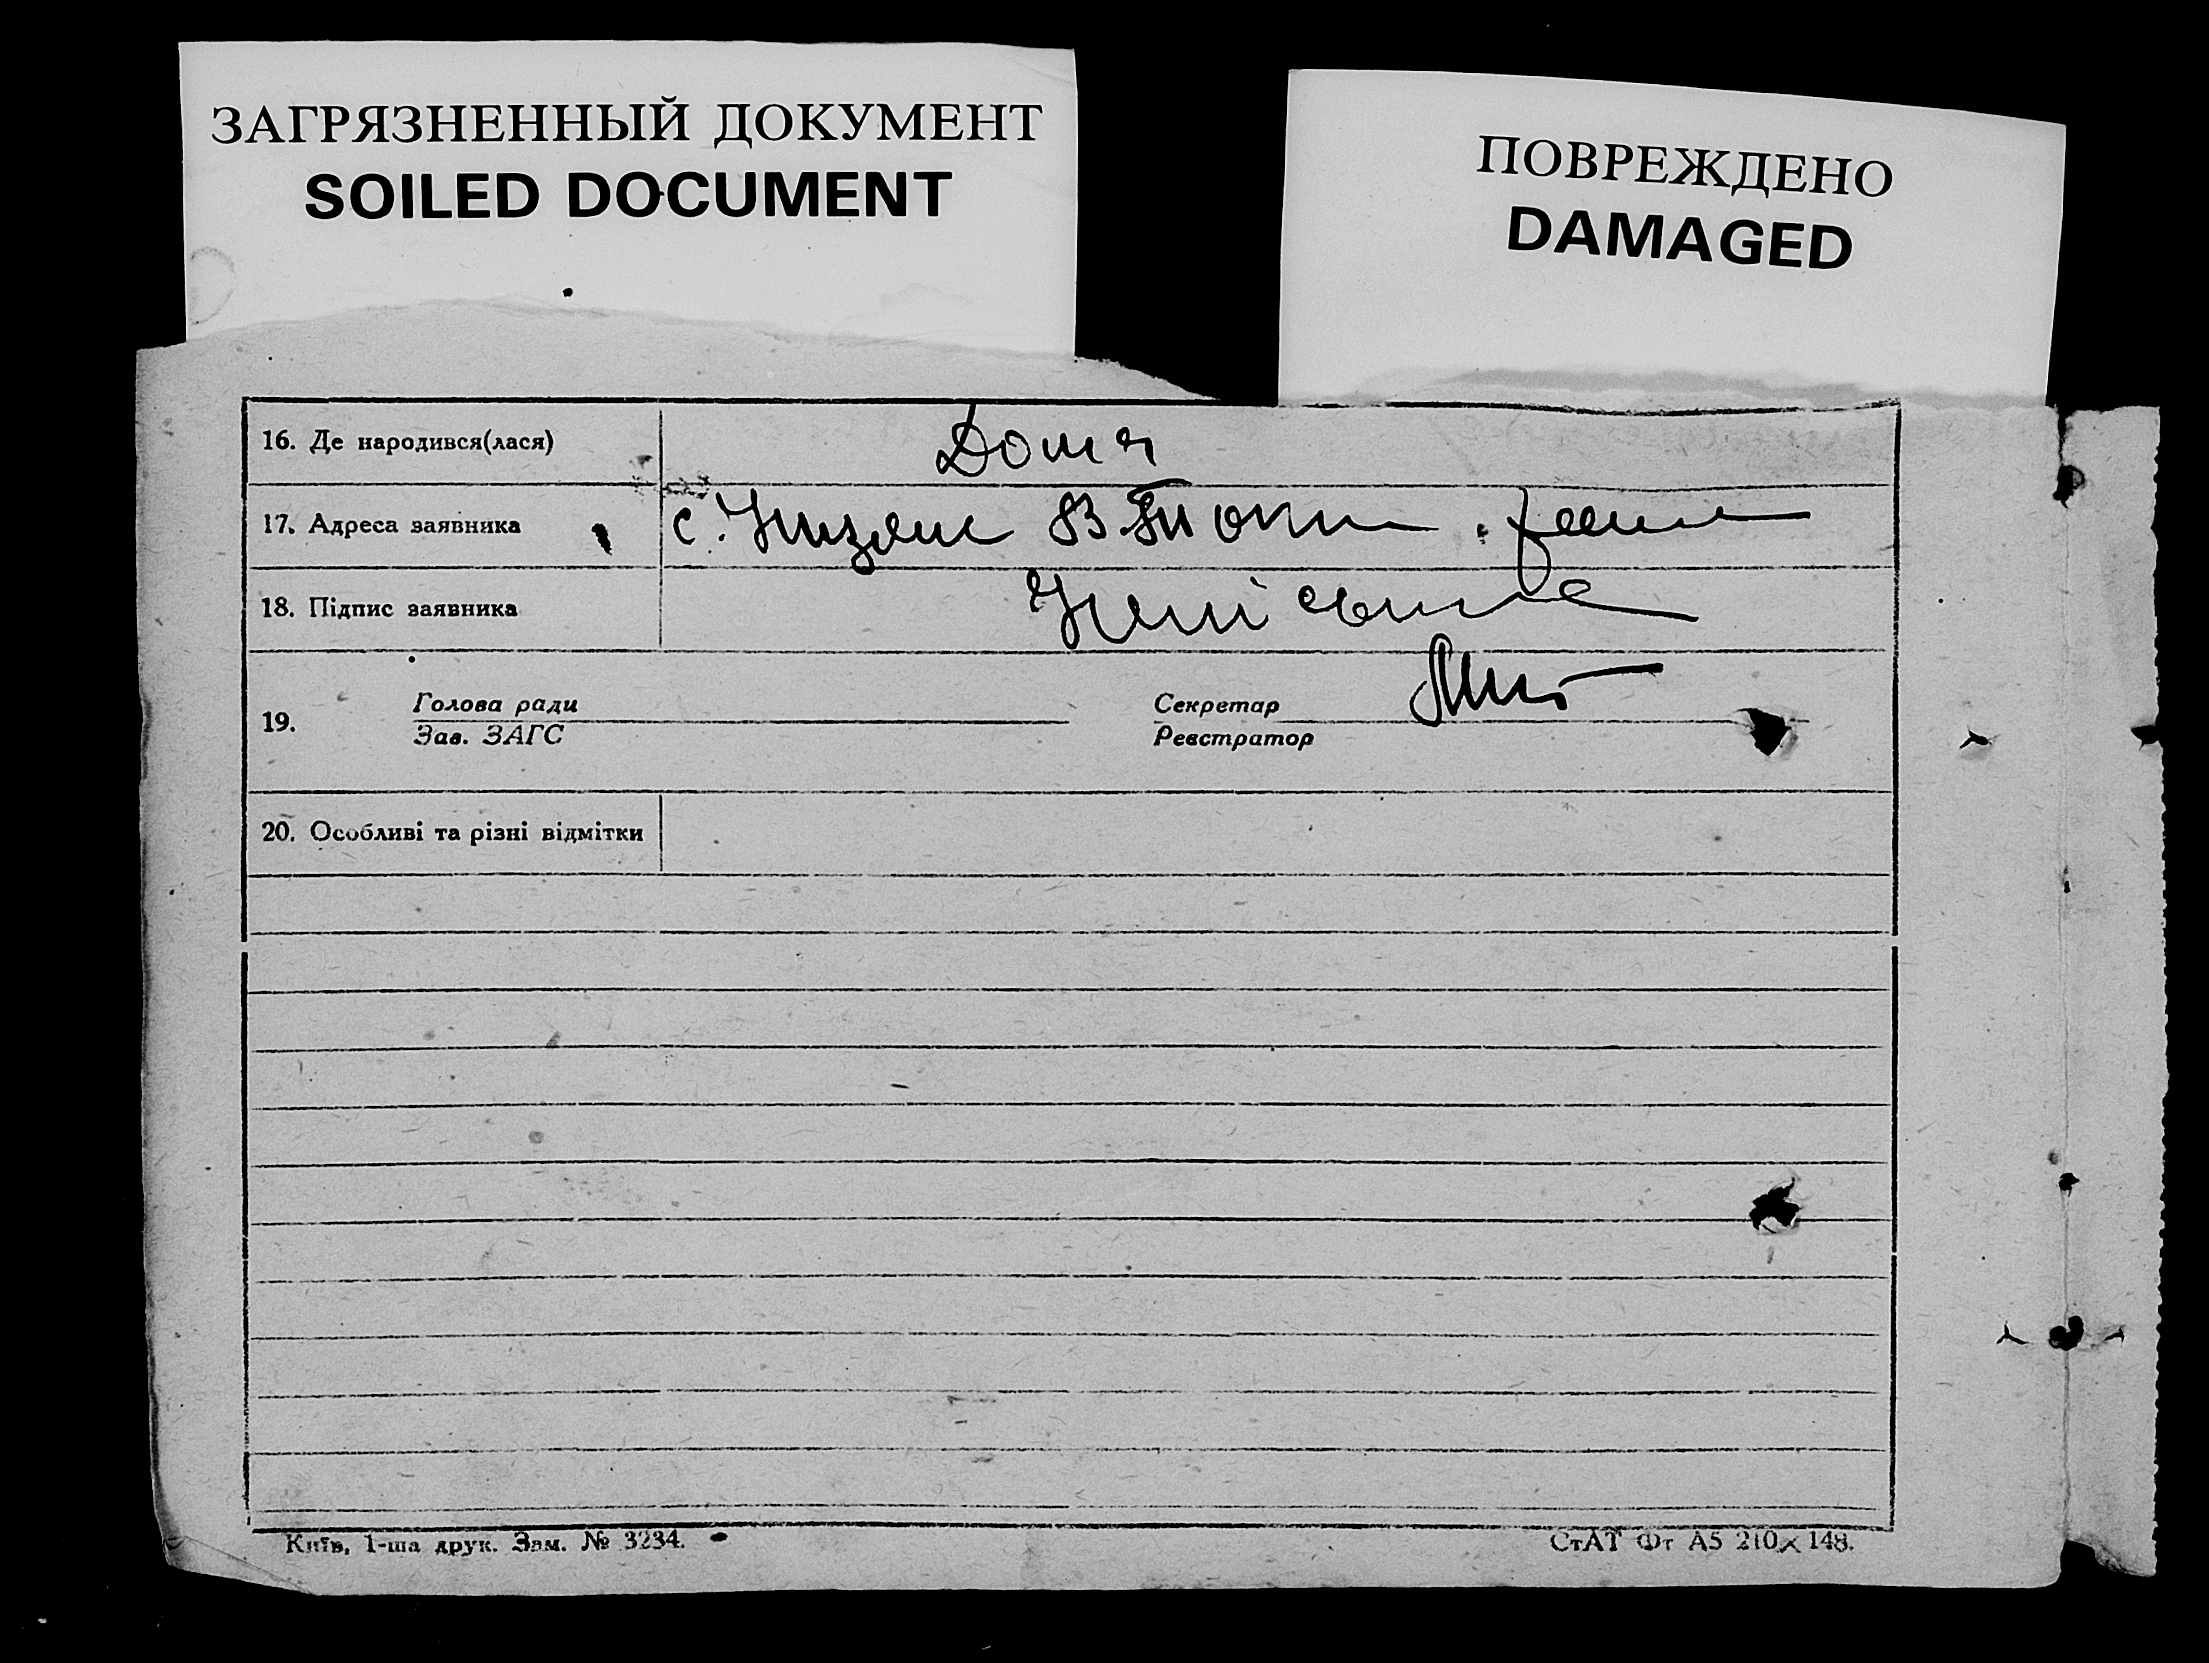 ЗАГРЯЗНЕННЫЙ ДОКУМЕНТ
SOILED DOCUMENT
ПОВРЕЖДЕНО
DAMAGED
16. Де народився(лася) Дома
17. Адреса заявника с.
18. Підпис заявника
19. Голова ради Секретар
Зав. ЗАГС Реєстратор
20. Особливі та різні відмітки
Київ, 1-ша друк. Зам. № 3234. СтАТ Фт А5 210×148.